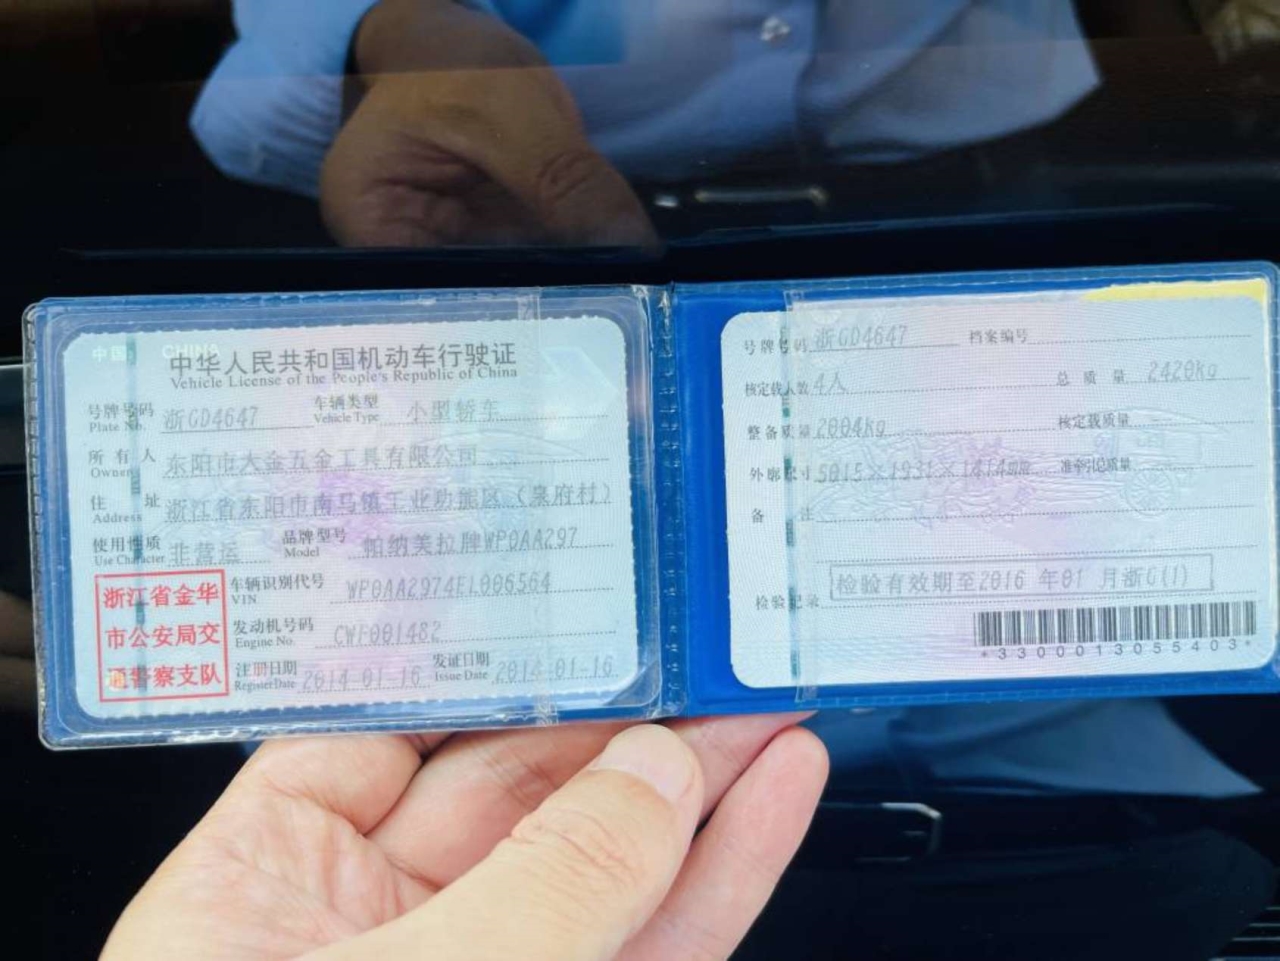 中国 CHINA
中华人民共和国机动车行驶证
Vehicle License of the People's Republic of China
号牌号码 浙GD4647 车辆类型 小型轿车
Plate No. Vehicle Type
所有人 东阳市大金五金工具有限公司
Owner
住址 浙江省东阳市南马镇工业功能区(泉府村)
Address
使用性质 非营运 品牌型号 帕纳美拉牌WP0AA297
Use Character Model
浙江省金华
市公安局交
通警察支队
车辆识别代号 WP0AA2974EL006564
VIN
发动机号码 CWF001482
Engine No.
注册日期 2014-01-16 发证日期 2014-01-16
Register Date Issue Date
号牌号码 浙GD4647 档案编号
核定载人数 4人 总质量 2420kg
整备质量 2004kg 核定载质量
外廓尺寸 5015×1931×1414mm 准牵引总质量
备注
检验记录 检验有效期至2016年01月浙G(1)
*3300013055403*